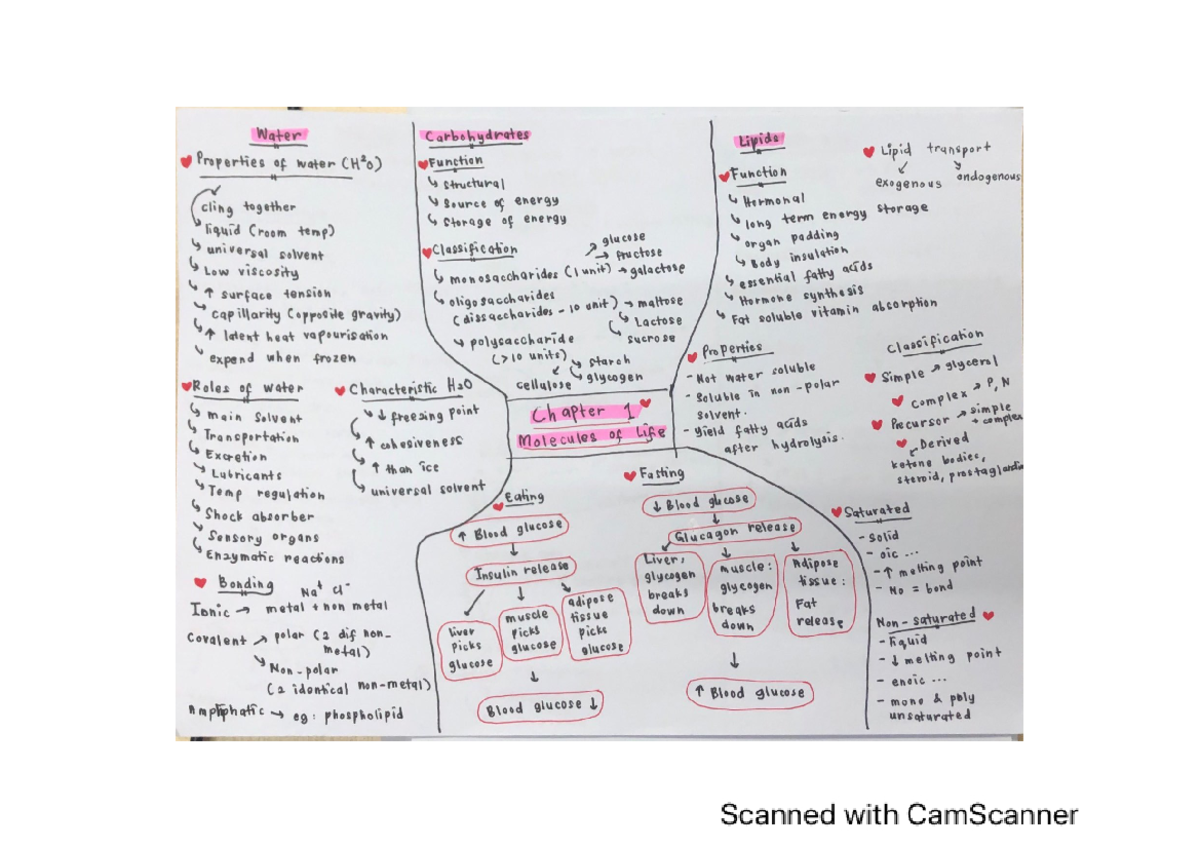 Water
Properties of water (H²O)
cling together
liquid (room temp)
universal solvent
Low viscosity
↑ surface tension
capillarity (opposite gravity)
↑ latent heat vapourisation
expend when frozen
Roles of water
main solvent
Transportation
Excretion
Lubricants
Temp regulation
Shock absorber
Sensory organs
Enzymatic reactions
Characteristic H2O
↓ freezing point
↑ cohesiveness
↑ than ice
universal solvent
Bonding
Na⁺ Cl⁻
Ionic → metal + non metal
Covalent → polar (2 dif non-
metal)
Non-polar
(2 identical non-metal)
→ eg: phospholipid
Carbohydrates
Function
structural
Source of energy
Storage of energy
Classification
monosaccharides (1 unit) → galactose
→ glucose
→ fructose
oligosaccharides
(dissaccharides - 10 unit) → maltose
Lactose
sucrose
polysaccharide
(>10 units)
starch
glycogen
cellulose
Chapter 1
Molecules of Life
Lipids
Function
Hormonal
long term energy storage
organ padding
Body insulation
essential fatty acids
Hormone synthesis
Fat soluble vitamin absorption
Lipid transport
exogenous
endogenous
Properties
- Not water soluble
- Soluble in non-polar
solvent.
- yield fatty acids
after hydrolysis.
Classification
Simple → glycerol
complex → P, N
Precursor → simple
+ complex
Derived
ketone bodies,
steroid,
Saturated
- solid
- oic ...
- ↑ melting point
- No = bond
Non-saturated
- liquid
- ↓ melting point
- enoic ...
- mono & poly
unsaturated
Eating
↑ Blood glucose
Insulin release
liver
picks
glucose
muscle
picks
glucose
adipose
tissue
picks
glucose
Blood glucose ↓
Fasting
↓ Blood glucose
Glucagon release
Liver;
glycogen
breaks
down
muscle:
glycogen
breaks
down
Adipose
tissue:
Fat
release
↑ Blood glucose
Scanned with CamScanner